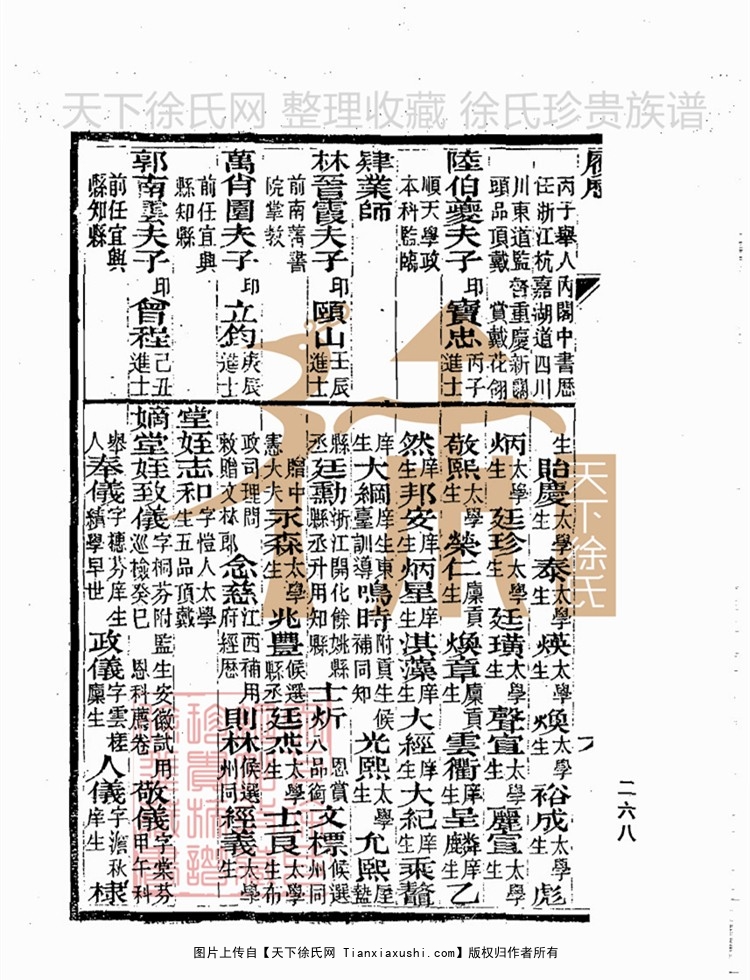 天下徐氏网 整理收藏 徐氏珍贵族谱
履歷
丙子舉人內閣中書歷
任浙江杭嘉湖道四川
川東道監督重慶新關
頭品頂戴 賞戴花翎
陸伯夔夫子印寶忠丙子進士
順天學政
本科監臨
肄業師
林晉霞夫子印頤山壬辰進士
前南菁書
院掌教
萬肖園夫子印立鈞庚辰進士
前任宜興
縣知縣
郭南雲夫子印曾程己丑進士
前任宜興
縣知縣
生貽慶太學生泰太學生煐太學生煥太學生裕成太學生彪
炳太學生廷珍太學生廷璜太學生聲宣太學生麗宣太學生
敬熙太學生榮仁廩貢生煥章廩貢生雲衢庠生呈麟庠生乙
然庠生邦安庠生炳星庠生淇藻庠生大經庠生大紀庠生乘鰲
庠生大綱庠生東臺訓導鳴時附貢生候補同知光熙太學生允熙
縣丞廷勳浙江開化餘姚縣縣丞升用知縣士炘恩賞八品銜文標候選州同
贈中憲大夫永森太學生兆豐候選縣丞廷燕太學生士良太學生布
政司理問敕贈文林郎念慈江西補用府經歷則林候選州同經義太學生
堂姪志和字愷人太學生五品頂戴
嫡堂姪致儀字桐芬附監生安徽試用巡檢癸巳恩科薦卷敬儀字棠芬甲午科
舉人奉儀字穗芬庠生績學早世政儀字雲槎廩生人儀字澹秋庠生棣
二六八
天下徐氏
图片上传自【天下徐氏网 Tianxiaxushi.com】版权归作者所有